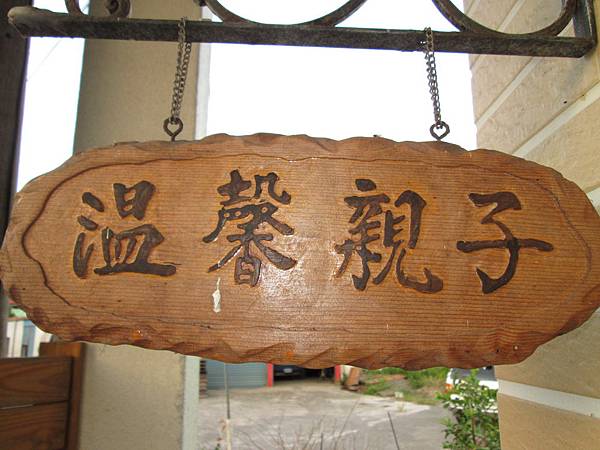 温馨親子